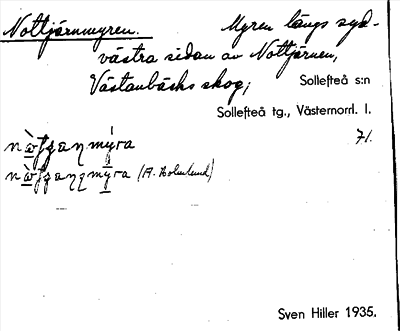 Nottjärnmyren. Myren längs syd-
västra sidan av Nottjärnen,
Västanbäcks skog; Sollefteå s:n
Sollefteå tg., Västernorrl. l.
71.
(A. Holmlund)
Sven Hiller 1935.